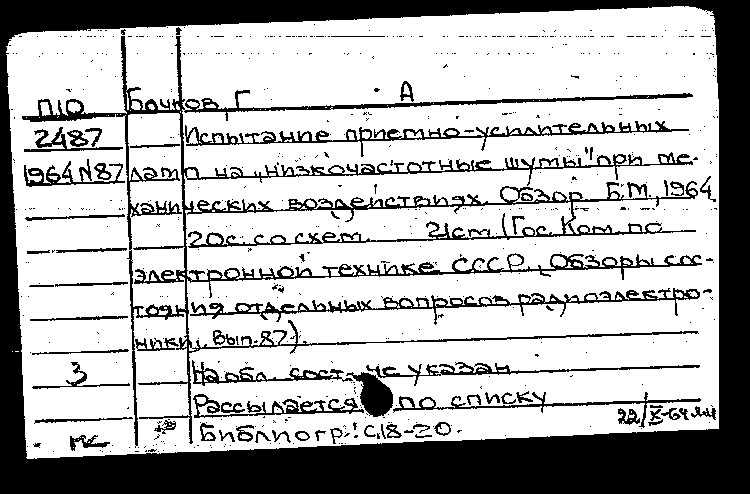 П10 Бочков, Г А
2487 Испытание приемно-усилительных
1964 N87 ламп на „низкочастотные шумы" при ме-
ханических воздействиях. Обзор. Б.М., 1964
20с. со схем. 21см (Гос. Ком. по
электронной технике СССР. Обзоры сос-
тояния отдельных вопросов радиоэлектро-
ники, Вып. 87).
3 На обл. сост. не указан
Рассылается по списку
Библиогр.: с.18-20.
22/X-64